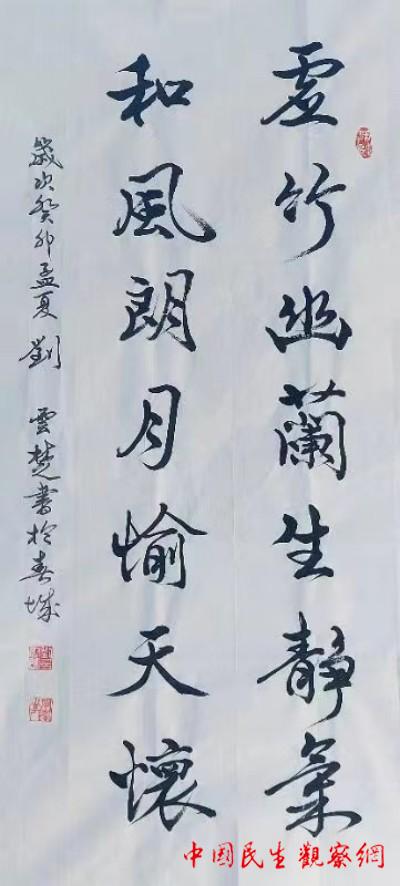 虚竹幽蘭生靜氣
和風朗月愉天懷
歲次癸卯孟夏劉雲楚書於春城
中國民生觀察網